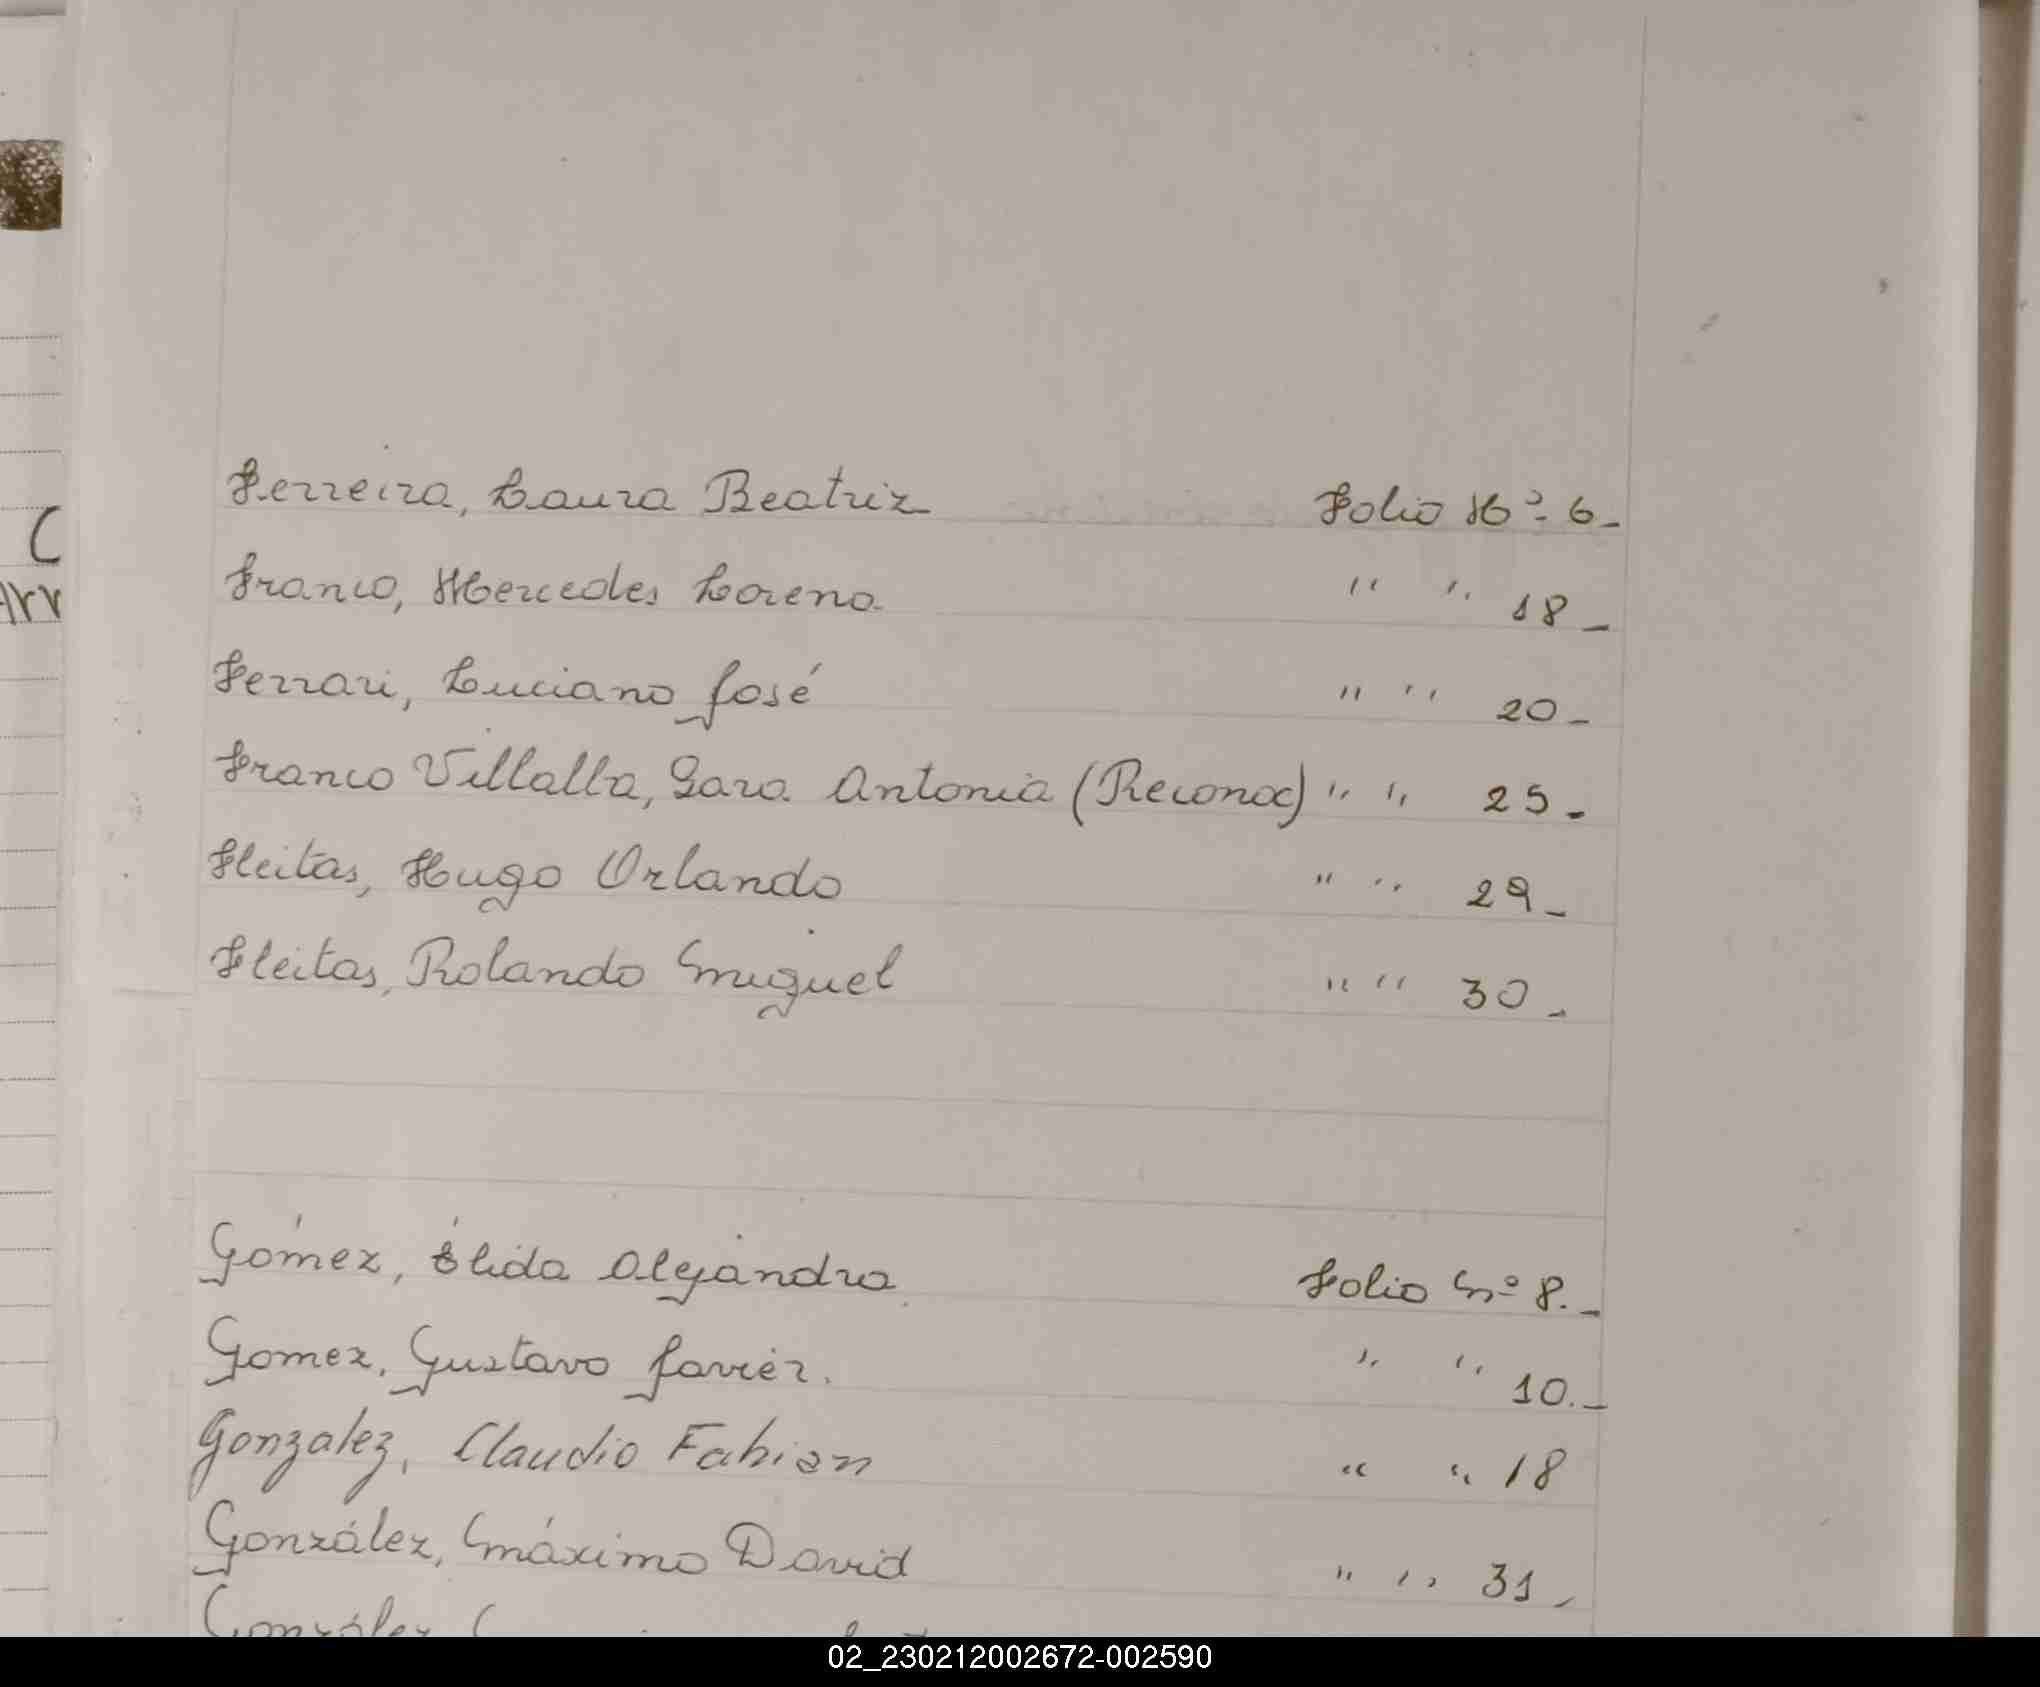 Ferreira, Laura Beatriz Folio Nº 6-
Franco, Mercedes Lorena " " 18-
Ferrari, Luciano José " " 20-
Franco Villalba, Sara Antonia (Reconoc) " " 25-
Fleitas, Hugo Orlando " " 29-
Fleitas, Rolando Miguel " " 30-
C
Arr
Gómez, Élida Alejandra Folio Nº 8.-
Gomez, Gustavo Javier. " " 10.-
Gonzalez, Claudio Fabian " " 18
González, Máximo David " " 31-
González
02_230212002672-002590